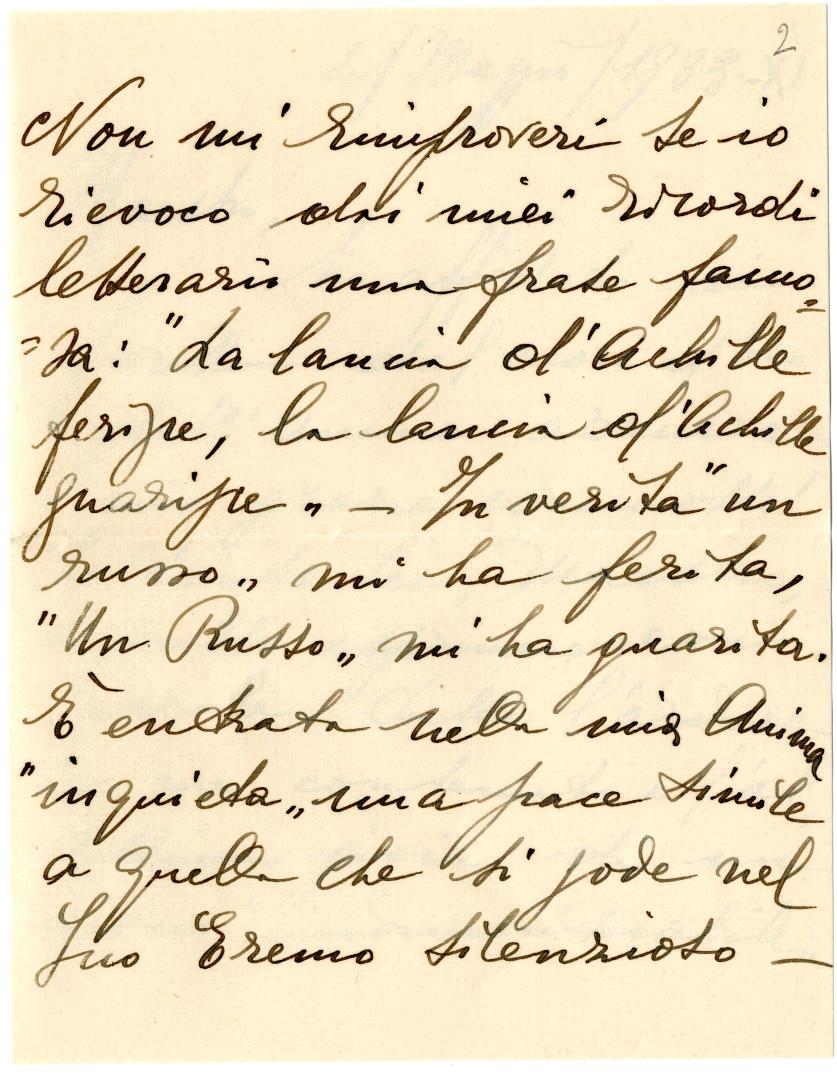 2
Non mi rimproveri se io
rievoco dai miei ricordi
letterarii una frase famo=
=sa: "La lancia d'Achille
ferisce, la lancia d'Achille
guarisce„ — In verità "un
russo„ mi ha ferita,
"Un Russo„ mi ha guarita.
È entrata nella mia Anima
"inquieta„ una pace simile
a quella che si gode nel
Suo Eremo silenzioso —